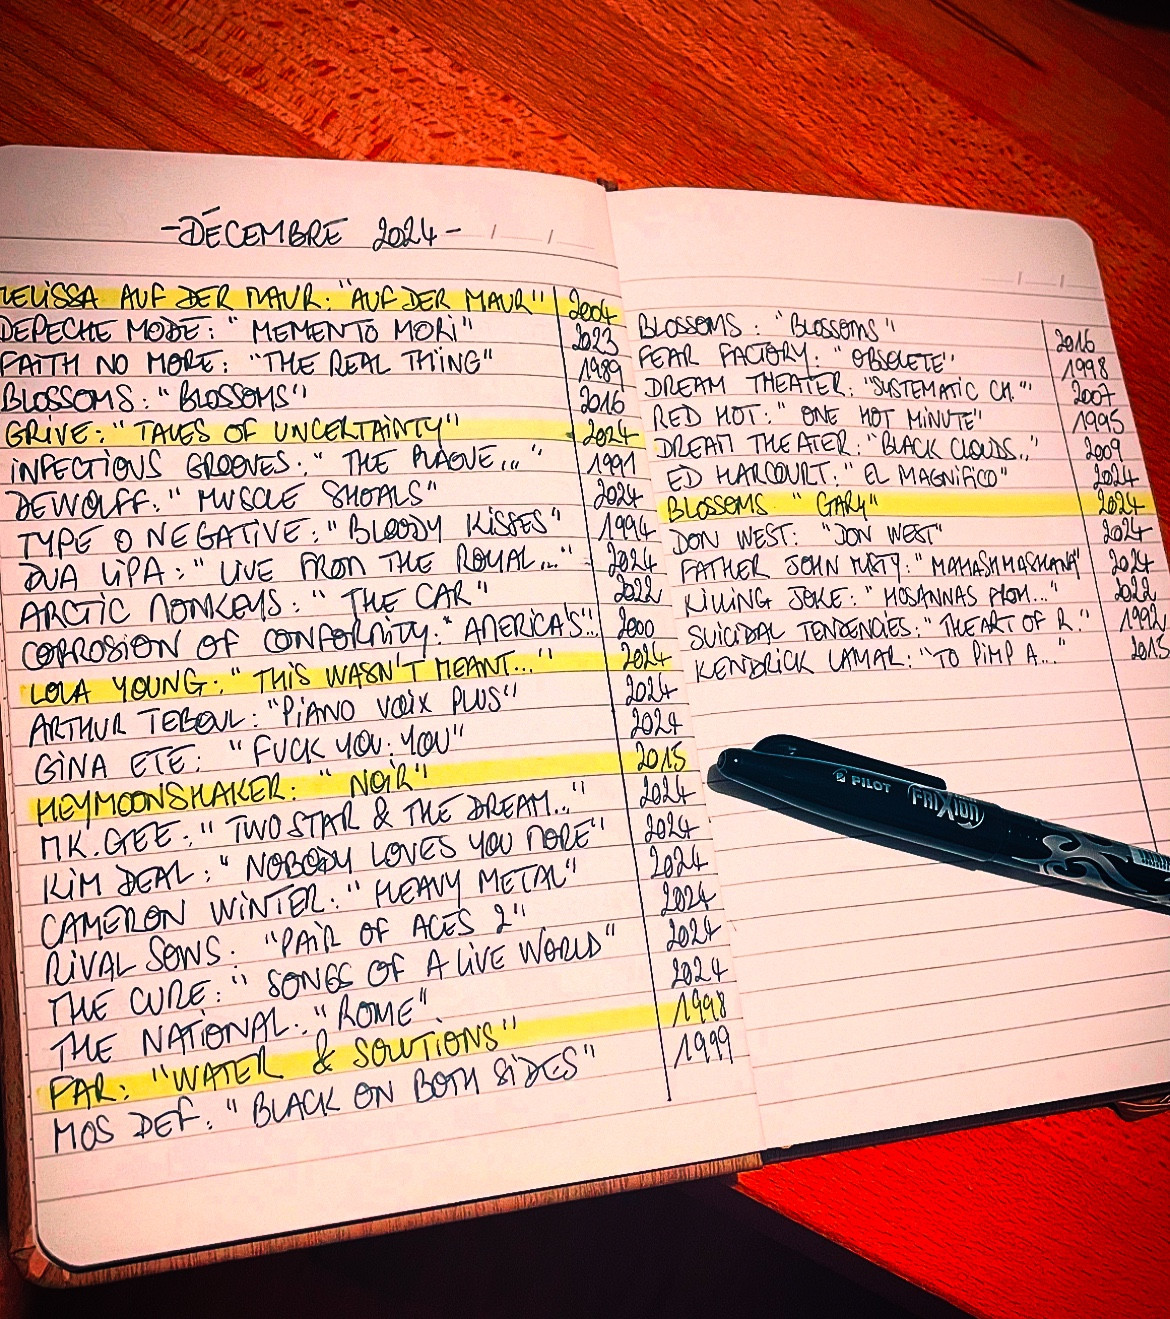 -DÉCEMBRE 2024-
MELISSA AUF DER MAUR: "AUF DER MAUR" 2004
DEPECHE MODE: "MEMENTO MORI" 2023
FAITH NO MORE: "THE REAL THING" 1989
BLOSSOMS: "BLOSSOMS" 2016
GRIVE: "TALES OF UNCERTAINTY" 2024
INFECTIOUS GROOVES: "THE PLAGUE..." 1991
DEWOLFF: "MUSCLE SHOALS" 2024
TYPE O NEGATIVE: "BLOODY KISSES" 1994
DUA LIPA: "LIVE FROM THE ROYAL..." 2024
ARCTIC MONKEYS: "THE CAR" 2022
CORROSION OF CONFORMITY: "AMERICA'S..." 2000
LOLA YOUNG: "THIS WASN'T MEANT..." 2024
ARTHUR TEBOUL: "PIANO VOIX PLUS" 2024
GINA ETE: "FUCK YOU. YOU" 2024
HEYMOONSHAKER: "NOIR" 2015
MK.GEE: "TWO STAR & THE DREAM..." 2024
KIM DEAL: "NOBODY LOVES YOU MORE" 2024
CAMERON WINTER: "HEAVY METAL" 2024
RIVAL SONS: "PAIR OF ACES 2" 2024
THE CURE: "SONGS OF A LIVE WORLD" 2024
THE NATIONAL: "ROME" 2024
FAR: "WATER & SOLUTIONS" 1998
MOS DEF: "BLACK ON BOTH SIDES" 1999
BLOSSOMS: "BLOSSOMS" 2016
FEAR FACTORY: "OBSOLETE" 1998
DREAM THEATER: "SYSTEMATIC CH." 2007
RED HOT: "ONE HOT MINUTE" 1995
DREAM THEATER: "BLACK CLOUDS.." 2009
ED HARCOURT: "EL MAGNIFICO" 2024
BLOSSOMS "GARY" 2024
DON WEST: "DON WEST" 2024
FATHER JOHN MISTY: "MAHASHMASHANA" 2024
KILLING JOKE: "HOSANNAS FROM..." 2022
SUICIDAL TENDENCIES: "THE ART OF R." 1992
KENDRICK LAMAR: "TO PIMP A..." 2015
PILOT FRIXION